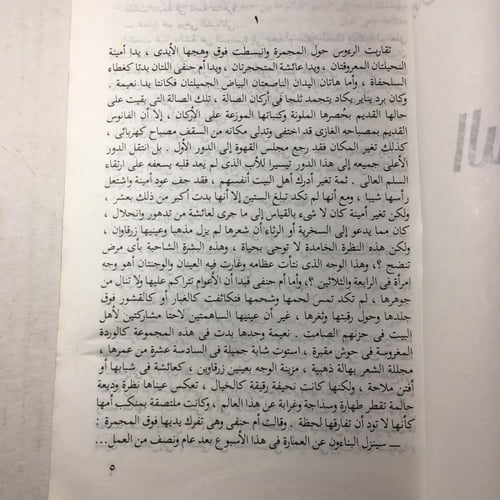 ١
تقاربت الرءوس حول المجمرة وانبسطت فوق وهجها الأيدى ، يدا أمينة
النحيلتان المعروقتان ، ويدا عائشة المتحجرتان ، ويدا أم حنفى اللتان بدتا كغطاء
السلحفاة ، وأما هاتان اليدان الناصعتان البياض الجميلتان فكانتا يدا نعيمة .
وكان برد يناير يكاد يتجمد ثلجا فى أركان الصالة ، تلك الصالة التى بقيت على
حالها القديم بحُصرها الملونة وكنباتها الموزعة على الأركان ، إلا أن الفانوس
القديم بمصباحه الغازى قد اختفى وتدلى مكانه من السقف مصباح كهربائى ،
كذلك تغير المكان فقد رجع مجلس القهوة إلى الدور الأول . بل انتقل الدور
الأعلى جميعه إلى هذا الدور تيسيرا للأب الذى لم يعد قلبه يسعفه على ارتقاء
السلم العالى . ثمة تغير أدرك أهل البيت أنفسهم ، فقد جف عود أمينة واشتعل
رأسها شيبا ، ومع أنها لم تكد تبلغ الستين إلا أنها بدت أكبر من ذلك بعشر ،
ولكن تغير أمينة كان لا شىء بالقياس إلى ما جرى لعائشة من تدهور وانحلال ،
كان مما يدعو إلى السخرية أو الرثاء أن شعرها لم يزل مذهبا وعينيها زرقاوان ،
ولكن هذه النظرة الخامدة لا توحى بحياة ، وهذه البشرة الشاحبة بأى مرض
تنضح ؟، وهذا الوجه الذى نتأت عظامه وغارت فيه العينان والوجنتان أهو وجه
امرأة فى الرابعة والثلاثين ؟، وأما أم حنفى فبدا أن الأعوام تتراكم عليها ولا تنال من
جوهرها ، لم تكد تمس لحمها وشحمها فتكاثفت كالغبار أو كالقشور فوق
جلدها وحول رقبتها وثغرها ، غير أن عينيها الساهمتين لاحتا مشاركتين لأهل
البيت فى حزنهم الصامت . نعيمة وحدها بدت فى هذه المجموعة كالوردة
المغروسة فى حوش مقبرة ، استوت شابة جميلة فى السادسة عشرة من عمرها ،
مجللة الشعر بهالة ذهبية ، مزينة الوجه بعينين زرقاوين ، كعائشة فى شبابها أو
أفتن ملاحة ، ولكنها كانت نحيفة رقيقة كالخيال ، تعكس عيناها نظرة وديعة
حالمة تقطر طهارة وسذاجة وغرابة عن هذا العالم ، وكانت ملتصقة بمنكب أمها
كأنها لا تود أن تفارقها لحظة . وقالت أم حنفى وهى تفرك يديها فوق المجمرة :
— سينزل البناءون عن العمارة فى هذا الأسبوع بعد عام ونصف من العمل...
٥